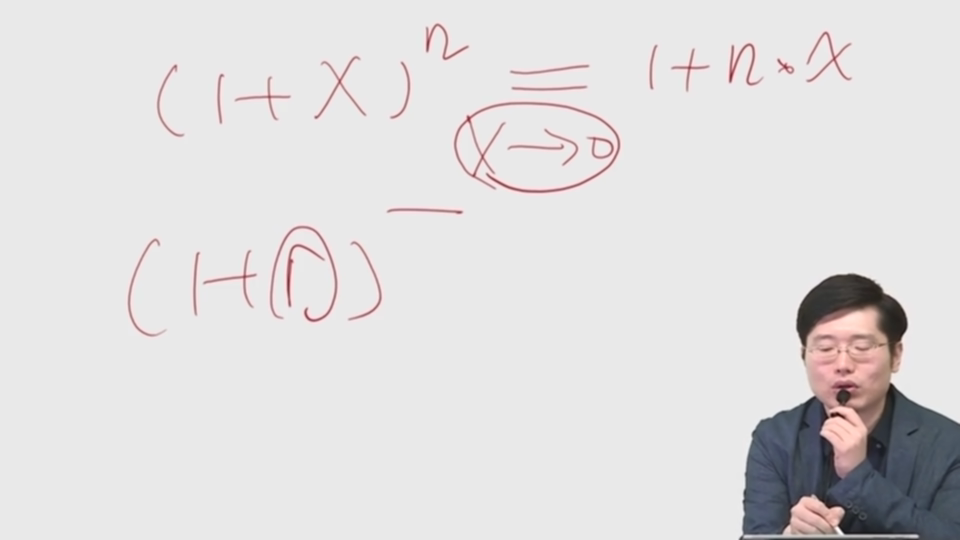 (1+X)ⁿ = 1+n·X
X→0
(1+ )